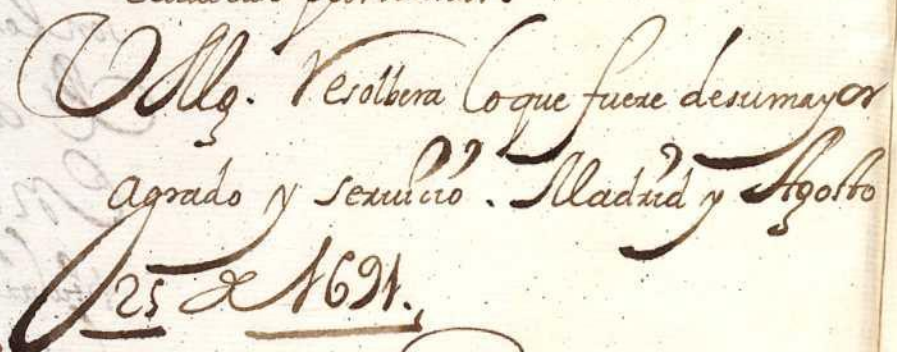 VMg. Resolbera lo que fuere de su mayor
agrado y seruicio. Madrid y Agosto
25 de 1691.